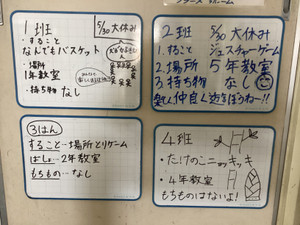 1班
5/30 大休み
・すること
なんでもバスケット
・場所
1年教室
・持ち物 なし
2班 5/30 大休み
1.すること ジェスチャーゲーム
2.場所 5年教室
3.持ち物 なし
楽しく仲良く遊ぼうねー!!
③はん
すること…場所とりゲーム
ばしょ…2年教室
もちもの…なし
4班
・たけのこニョッキッキ
・4年教室
もちものはないよ!